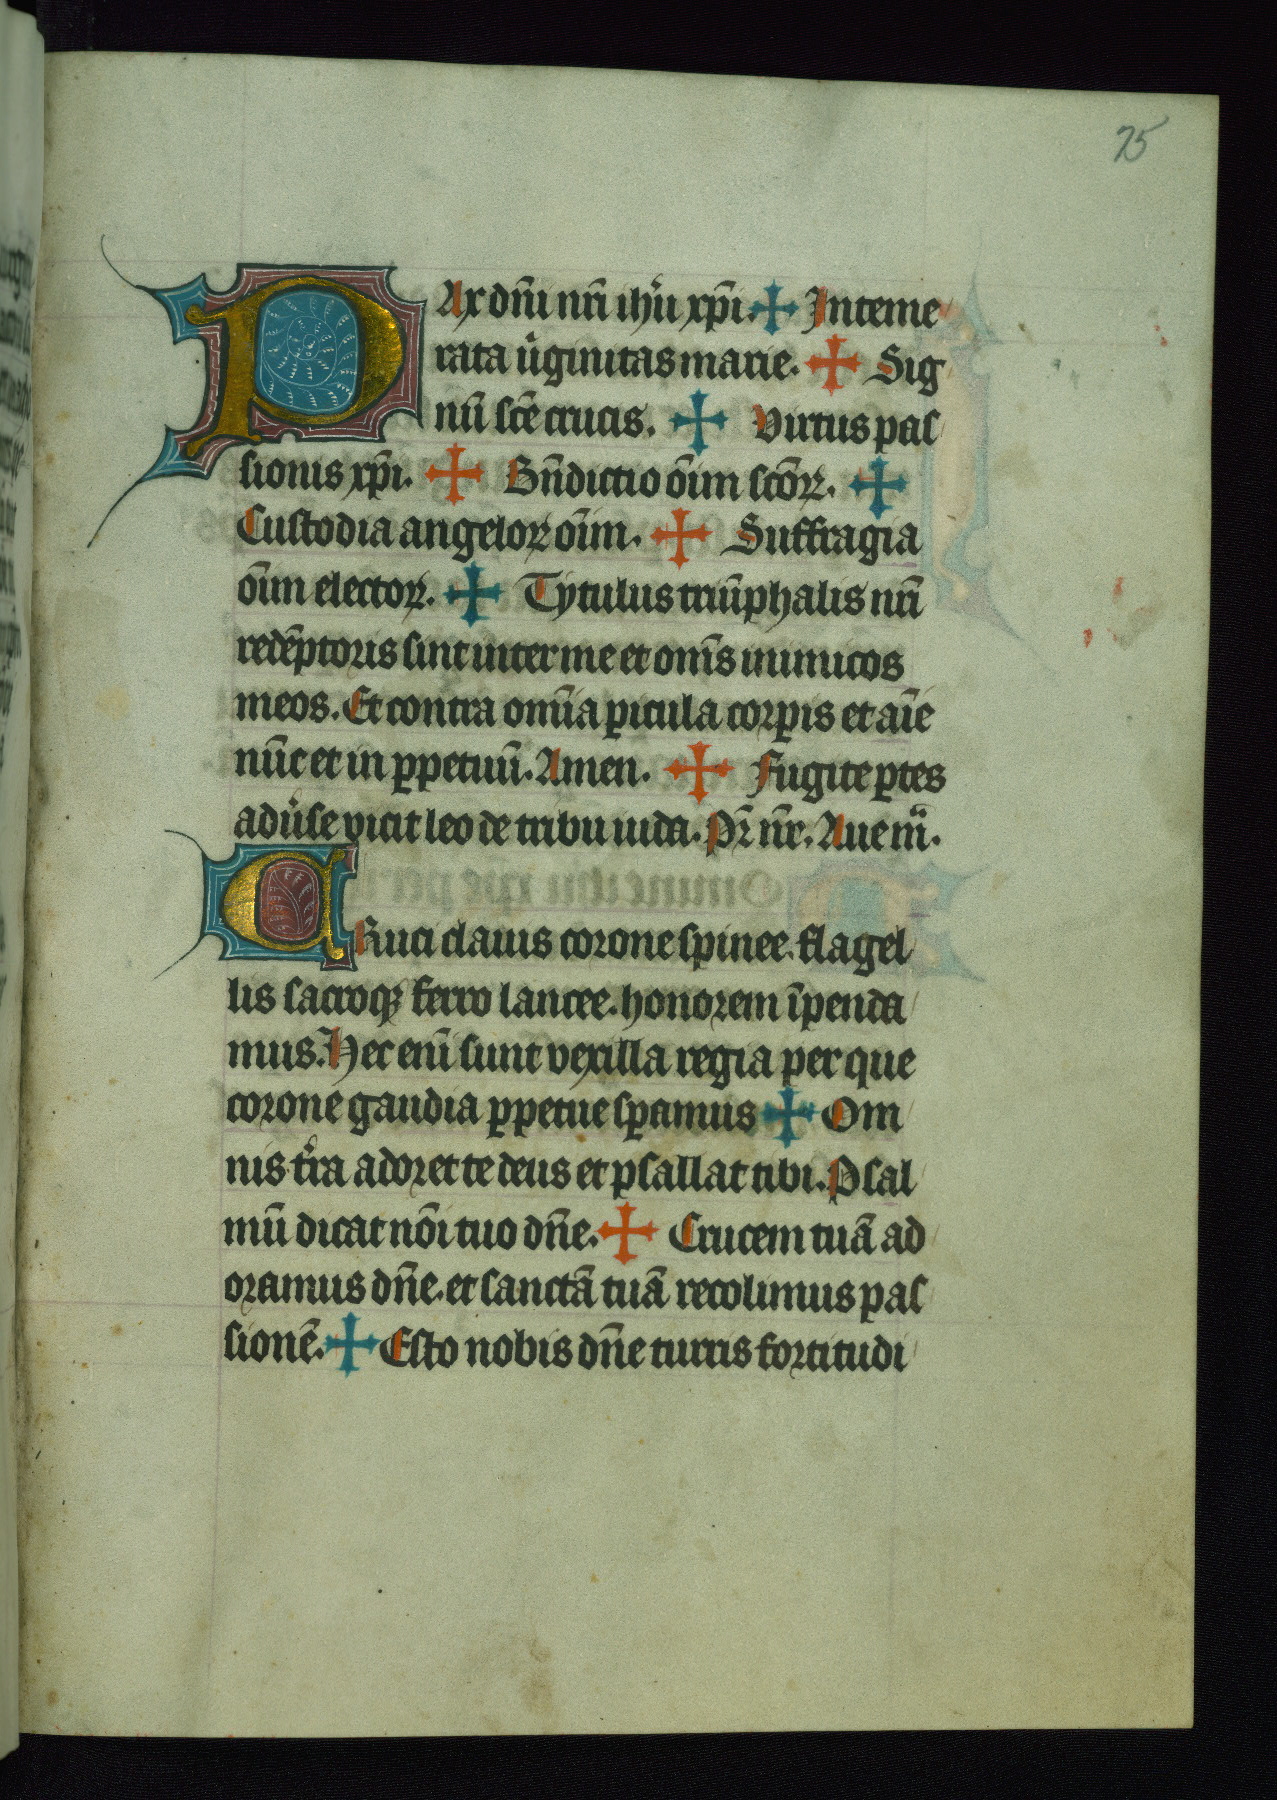 75
PAx dñi nr̃i ihũ xp̃i. ✠ Inteme
rata ũginitas marie. ✠ Sig
nũ scẽ crucis. ✠ Virtus pas
sionis xp̃i. ✠ Bñdictio õim scõꝝ. ✠
Custodia angeloꝝ oĩm. ✠ Suffragia
oĩm electoꝝ. ✠ Tytulus triũphalis nr̃i
redẽptoris sint inter me et omĩs inimicos
meos. Et contra omĩa ꝑicula corꝑis et aĩe
nũc et in ꝑpetuũ. Amen. ✠ Fugite ꝑtes
adũse vicit leo de tribu iuda. Pr̃ nr̃. Aue m̃.
CRuci clauis corone spinee. flagel
lis sacroqꝫ ferro lancee. honorem ĩpenda
mus. Hec enĩ sunt vexilla regia per que
corone gaudia ꝑpetue sꝑamus ✠ Om
nis tr̃a adoret te deus et psallat tibi. Psal
mũ dicat nõi tuo dñe. ✠ Crucem tuã ad
oramus dñe. et sanctã tuã recolimus pas
sionẽ. ✠ Esto nobis dñe turris fortitudi